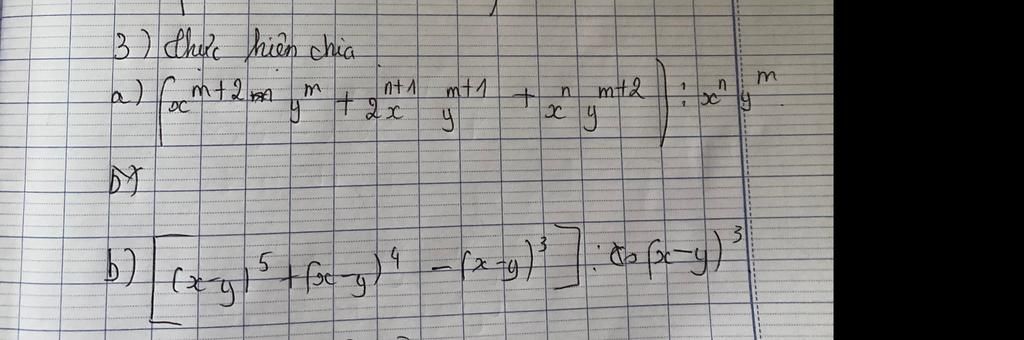 3) thực hiện chia
a) (x^{m+2} y^m + 2x^{n+1} y^{m+1} + x^n y^{m+2}) : x^n y^m
b)
b) [(x-y)^5 + (x-y)^4 - (x-y)^3] : (x-y)^3